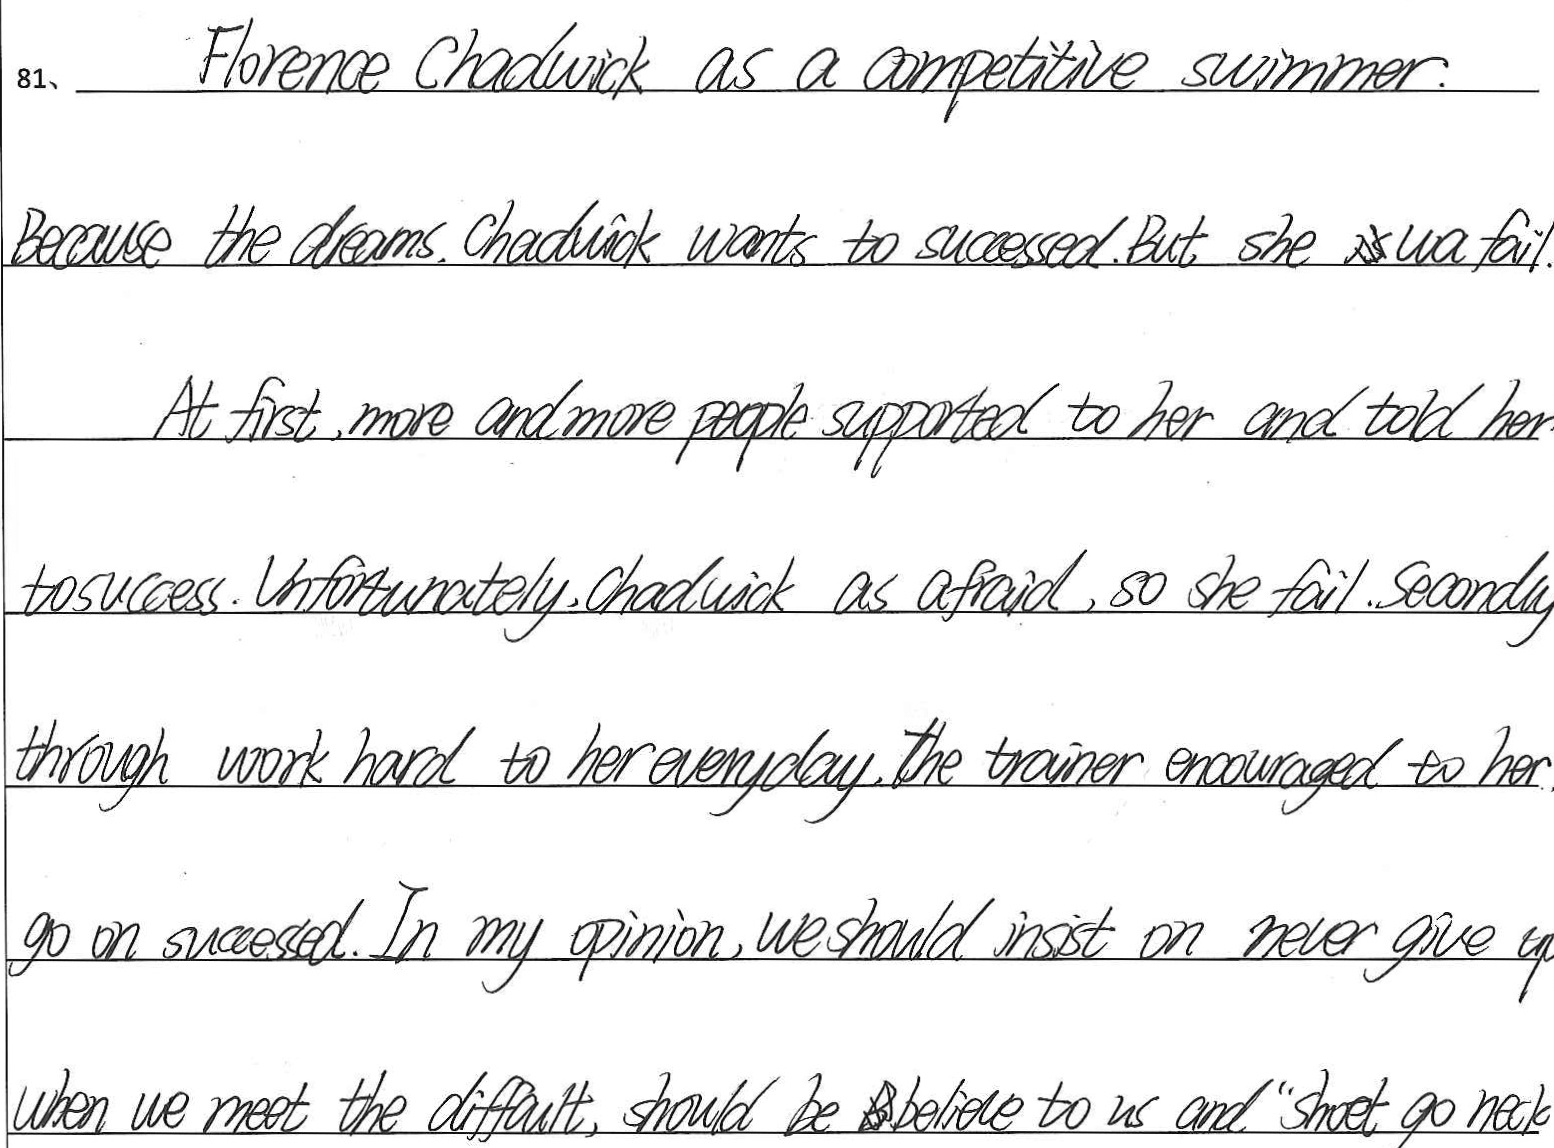 81、 Florence Chadwick as a competitive swimmer.
Because the dreams. Chadwick wants to successed. But she wa fail.
At first, more and more people supported to her and told her
to success. Unfortunately, Chadwick as afraid, so she fail. Secondly
through work hard to her everyday. The trainer encouraged to her.
go on successed. In my opinion, we should insist on never give up
when we meet the difficult, should be believe to us and "shoet go neck